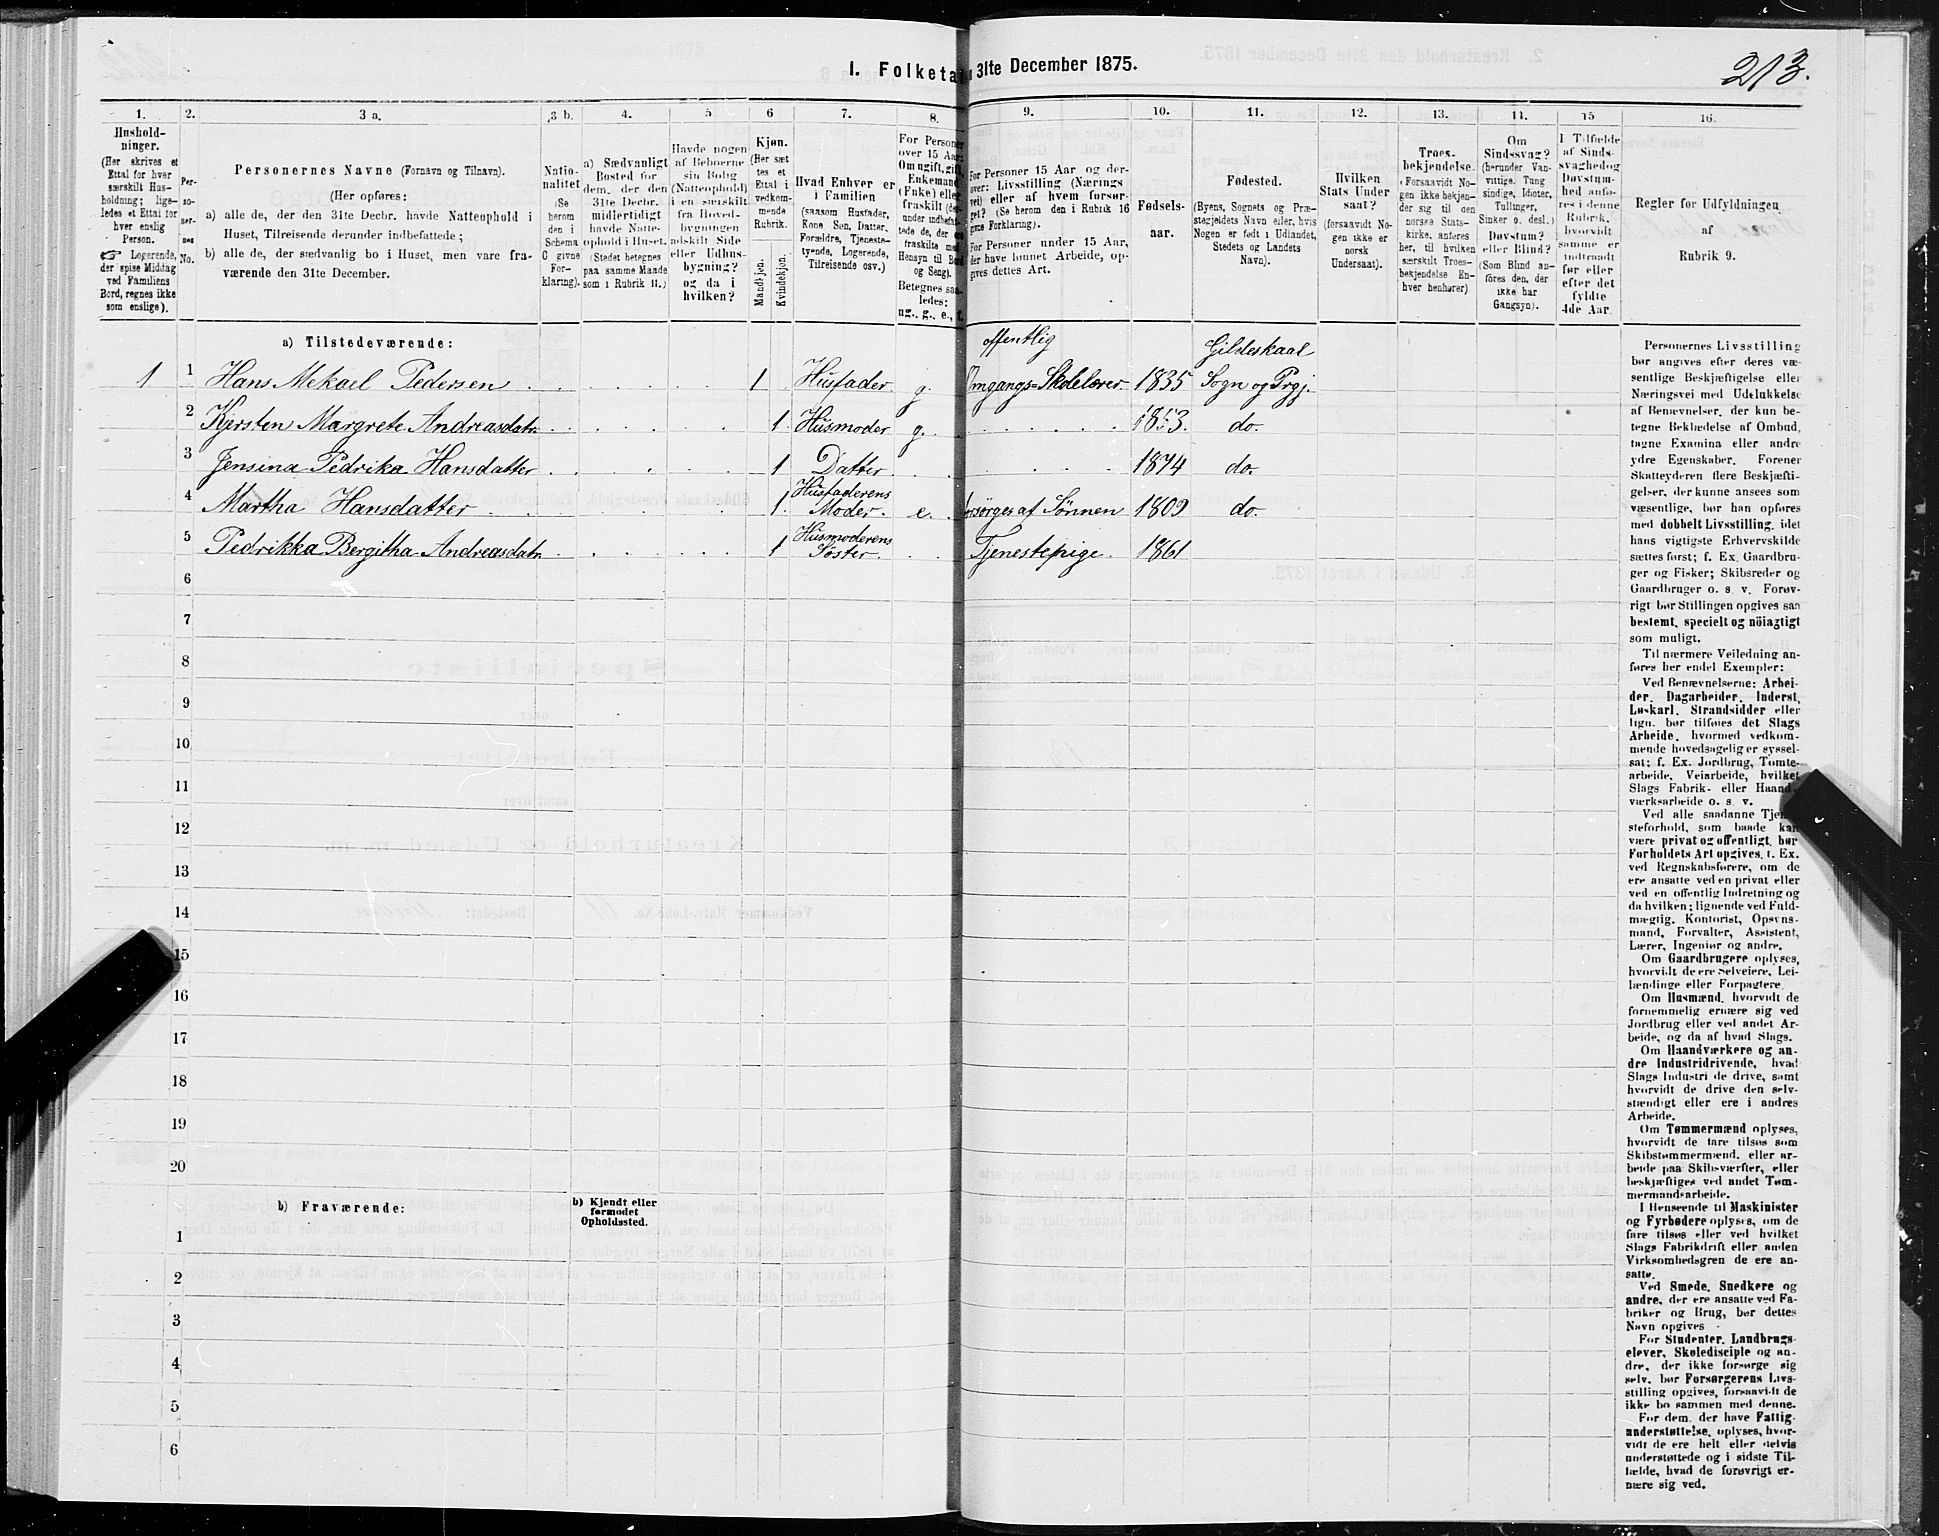 213.
I. Folketa 31te December 1875.
1. 2. 3 a. 3 b. 4. 5. 6 7. 8. 9. 10. 11. 12. 13. 14. 15 16.
Hushold-
ninger.
(Her skrives et
Ettal for hver
særskilt Hus-
holdning; lige-
ledes et Ettal for
hver enslig
Person.
☞ Logerende,
der spise Middag
ved Familiens
Bord, regnes ikke
som enslige).
Per-
so-
ner-
nes
No.
Personernes Navne (Fornavn og Tilnavn).
(Her opføres:
a) alle de, der den 31te Decbr. havde Natteophold i
Huset, Tilreisende derunder indbefattede;
b) alle de, der sædvanlig bo i Huset, men vare fra-
værende den 31te December.
Natio-
nalitet
(Se
herom
den i
Schema
C givne
For-
klaring).
a) Sædvanligt
Bosted for
dem, der den
31te Decbr.
midlertidigt
havde Natte-
ophold i Huset.
(Stedet betegnes
paa samme Maade
som i Rubrik 11.)
Havde nogen
af Beboerne
sin Bolig
(Natteophold)
i en særskilt
fra Hoved-
bygningen
adskilt Side
eller Udhus-
bygning?
og da i
hvilken?
Kjøn.
(Her sæt
tes et
Ettal i
vedkom-
mende
Rubrik.
Mandkjøn.
Kvindekjøn.
Hvad Enhver er
i Familien
(saasom Husfader,
Kone Søn, Datter,
Forældre, Tjeneste-
tyende, Logerende,
Tilreisende osv.)
For Personer
over 15 Aar:
Om ugift, gift,
Enkemand
(Enke) eller
fraskilt (der-
under indbefat-
tede de, der ere
fraskilte med
Hensyn til Bord
og Seng).
Betegnes saa-
ledes:
ug., g., e., f.
For Personer 15 Aar og der-
over: Livsstilling (Nærings
vei) eller af hvem forsør-
get? (Se herom den i Rubrik 16
givne Forklaring).
For Personer under 15 Aar,
der have lønnet Arbeide, op-
gives dettes Art.
Fødsels-
aar.
Fødested.
(Byens, Sognets og Præ-
stegjeldets Navn eller, hvis
Nogen er født i Udlandet,
Stedets og Landets
Navn).
Hvilken
Stats Under
saat?
(forsaavidt No-
gen ikke er
norsk
Undersaat).
Troes-
bekjendelse.
(Forsaavidt No-
gen ikke bekjen-
der sig til den
norske Stats-
kirke, anføres
her, til hvilken
særskilt Troes-
bekjendelse En-
hver henhører)
Om
Sindssvag?
(herunder Van-
vittige, Tung
sindige, Idioter,
Tullinger,
Sinker o. desl.)
Døvstum?
eller Blind?
(Som Blind an-
føres den, der
ikke har
Gangsyn).
I Tilfælde
af Sinds-
svaghed og
Døvstum-
hed anfø-
res i denne
Rubrik,
hvorvidt
samme er
indtraadt
før eller
efter det
fyldte
4de Aar.
Regler for Udfyldningen
af
Rubrik 9.
a) Tilstedeværende:
offentlig Gildeskaal
1 1 Hans Mekael Pedersen 1 Husfader g. Omgangs=Skolelærer 1835 Sogn og Prgj.
2 Kjersten Margrete Andreasdatr. 1 Husmoder g. 1853. do.
3 Jensina Pedrika Hansdatter 1 Datter 1874 do.
Husfaderens
4 Martha Hansdatter 1. Moder. e. forsørges af Sønnen 1809 do.
Husmoderens
5 Pedrikka Bergitha Andreasdatr 1 Søster. Tjenestepige. 1861
6
7
8
9
10
11
12
13
14
15
16
17
18
19
20
b) Fraværende:
b) Kjendt eller
formodet
Opholdssted.
1
2
3
4
5
6
Personernes Livsstilling
bør angives efter deres væ-
sentlige Beskjæftigelse eller
Næringsvei med Udelukkelse
af Benævnelser, der kun be-
tegne Beklædelse af Ombud,
tagne Examina eller andre
ydre Egenskaber. Forener
Skatteyderen flere Beskjæfti-
gelser, der kunne ansees som
væsentlige, bør han opføres
med dobbelt Livsstilling, idet
hans vigtigste Erhvervskilde
sættes først; f. Ex. Gaardbru-
ger og Fisker; Skibsreder og
Gaardbruger o. s. v. Forøv-
rigt bør Stillingen opgives saa
bestemt, specielt og nöiagtigt
som muligt.
Til nærmere Veiledning an-
føres her endel Exempler:
Ved Benævnelserne: Arbei-
der, Dagarbeider, Inderst,
Løskarl, Strandsidder eller
lign. bør tilføies det Slags
Arbeide, hvormed vedkom-
mende hovedsagelig er syssel-
sat; f. Ex. Jordbrug, Tomte-
arbeide, Veiarbeide, hvilket
Slags Fabrik- eller Haand-
værksarbeide o. s. v.
Ved alle saadanne Tjene-
steforhold, som baade kan
være privat og offentligt, bør
Forholdets Art opgives, t. Ex.
ved Regnskabsførere, om de
ere ansatte ved en privat eller
ved en offentlig Indretning og
da hvilken; lignende ved Fuld-
mægtig, Kontorist, Opsyns-
mand, Forvalter, Assistent,
Lærer, Ingeniør og andre.
Om Gaardbrugere oplyses,
hvorvidt de ere Selveiere, Lei-
lændinge eller Forpagtere.
Om Husmænd, hvorvidt de
fornemmelig ernære sig ved
Jordbrug eller ved andet Ar-
beide, og da af hvad Slags.
Om Haandværkere og an-
dre Industridrivende, hvad
Slags Industri de drive, samt
hvorvidt de drive den selv-
stændigt eller ere i andres
Arbeide.
Om Tømmermænd oplyses,
hvorvidt de fare tilsøs som
Skibstømmermænd, eller ar-
beide paa Skibsværfter, eller
beskjæftiges ved andet Tøm-
mermandsarbeide.
I Henseende til Maskinister
og Fyrbødere oplyses, om de
fare tilsøs eller ved hvilket
Slags Fabrikdrift eller anden
Virksomhedsgren de ere an-
satte.
Ved Smede, Snedkere og
andre, der ere ansatte ved Fa-
briker og Brug, bør dettes
Navn opgives
For Studenter, Landbrugs-
elever, Skoledisciple og an-
dre, der ikke forsørge sig
selv, bør Forsørgerens Livs-
stilling opgives, forsaavidt de
ikke bo sammen med denne.
For dem, der have Fattig-
understøttelse, oplyses, hvor-
vidt de ere helt eller delvis
understøttede og i sidste Til-
fælde, hvad de forøvrigt er-
nære sig ved.